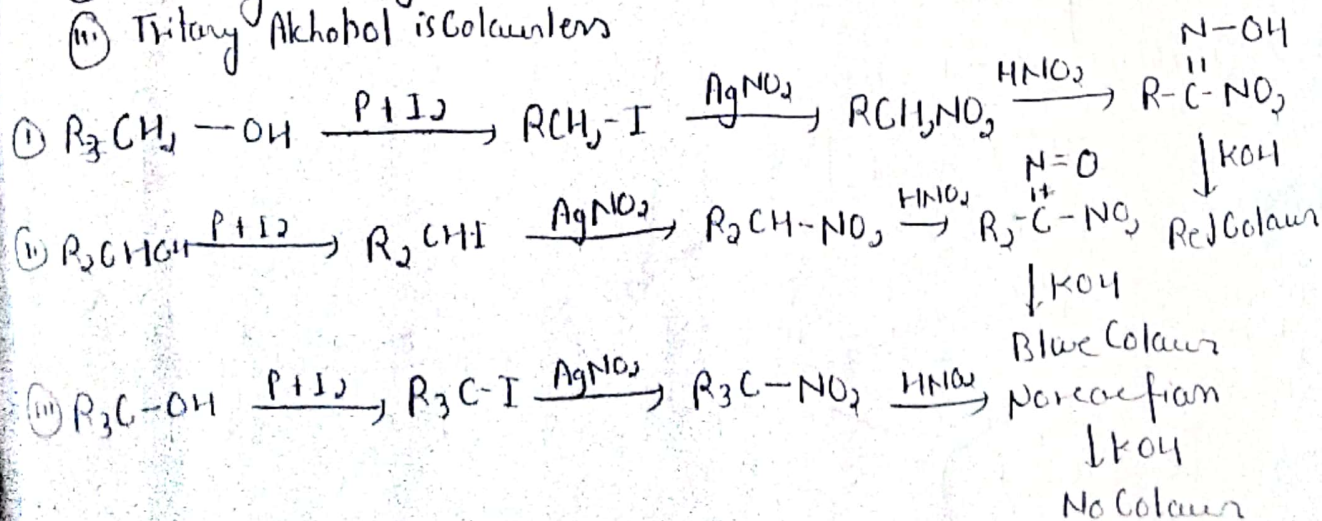 (iii) Tritary Alchohol is Colaurless
N-OH
① R₃CH₂-OH P+I₂→ RCH₂-I AgNO₂→ RCH₂NO₂ HNO₂→ R-C-NO₂
↓KOH
Red Colaur
N=O
(ii) R₂CHOH P+I₂→ R₂CHI AgNO₂→ R₂CH-NO₂ HNO₂→ R₂-C-NO₂
↓KOH
Blue Colaur
(iii) R₃C-OH P+I₂→ R₃C-I AgNO₂→ R₃C-NO₂ HNO₂→ Noreaction
↓KOH
No Colaur